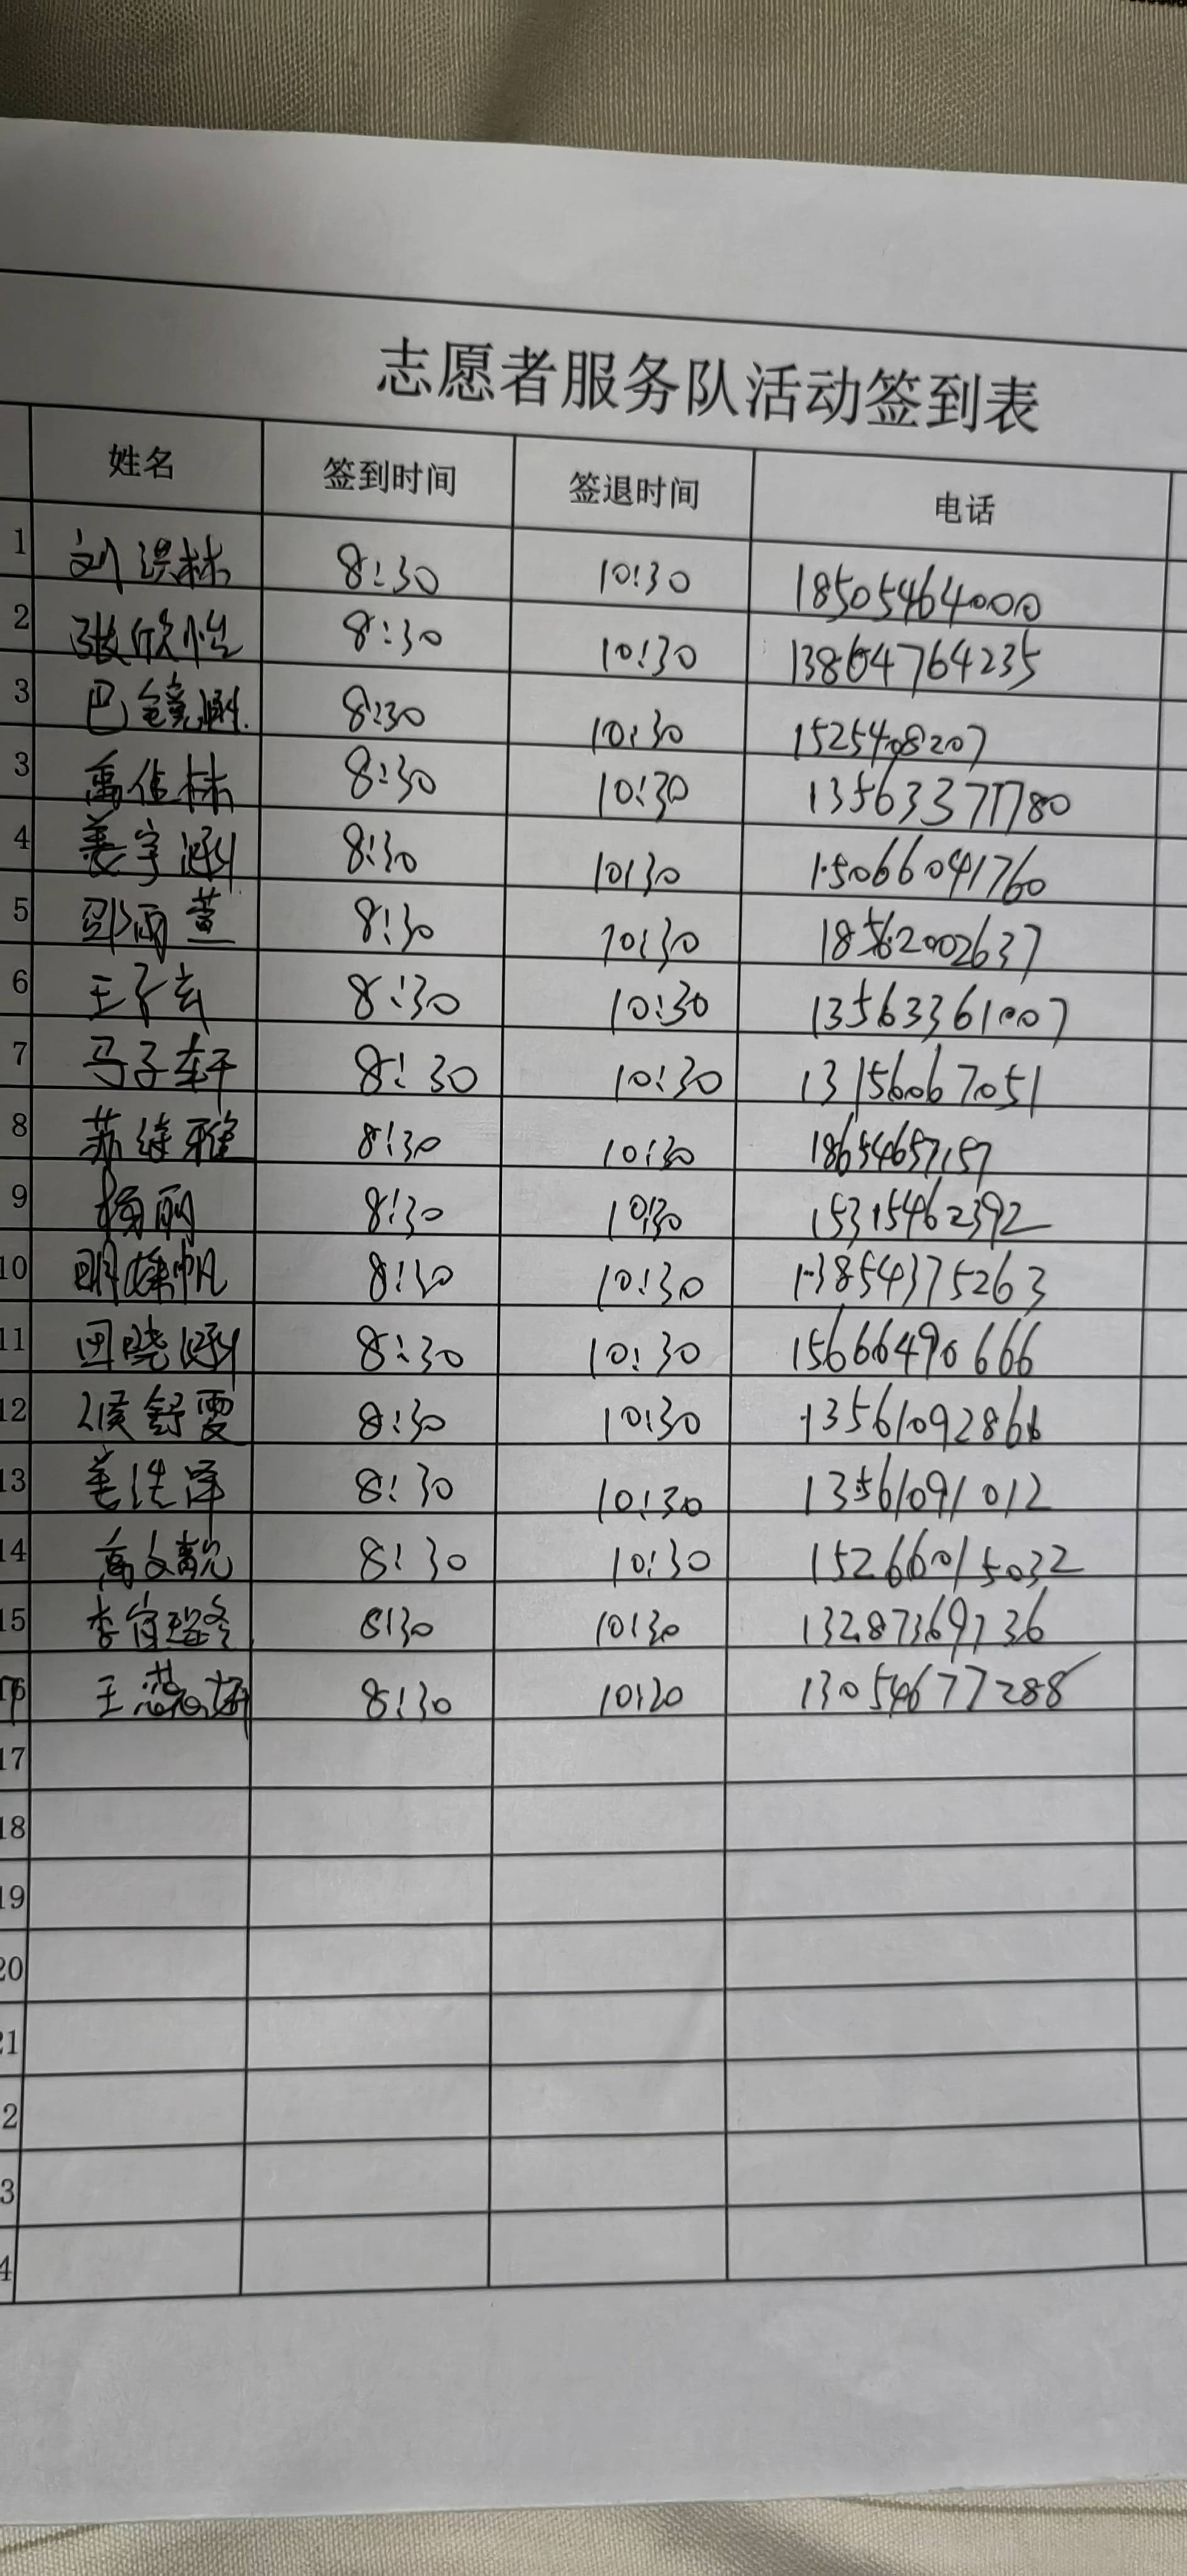 志愿者服务队活动签到表
姓名 签到时间 签退时间 电话
1 刘洪林 8:30 10:30 18505464000
2 张欣怡 8:30 10:30 13864764235
3 巴镜涵 8:30 10:30 1525408207
3 禹佳林 8:30 10:30 13563371780
4 姜宇涵 8:30 10:30 15066041760
5 邵雨萱 8:30 10:30 18562002637
6 王子玄 8:30 10:30 13563361007
7 马子轩 8:30 10:30 13156067051
8 苏 雅 8:30 10:30 18654657157
9 杨丽 8:30 10:30 15315462392
10 帆 8:30 10:30 13854375263
11 田晓涵 8:30 10:30 15666490666
12 侯舒雯 8:30 10:30 13561092866
13 姜 泽 8:30 10:30 13561091012
14 高文靓 8:30 10:30 15266015032
15 李 8:30 10:30 13287369736
16 王 8:30 10:20 13054677288
17
18
19
20
21
2
3
4